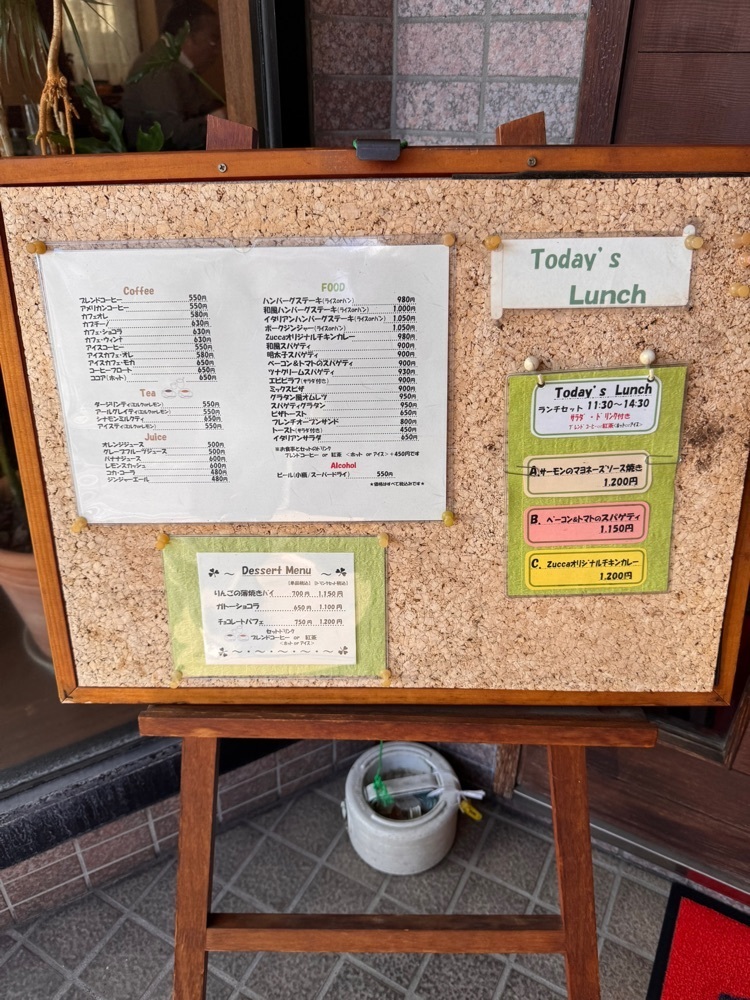 Coffee
ブレンドコーヒー 550円
アメリカンコーヒー 550円
カフェオレ 580円
カプチーノ 630円
カフェ・ショコラ 630円
カフェ・ウィンナ 630円
アイスコーヒー 550円
アイスカフェ・オレ 580円
アイスカフェ・モカ 650円
コーヒーフロート 650円
ココア(ホット) 650円
Tea
ダージリンティ(ミルクorレモン) 550円
アールグレイティ(ミルクorレモン) 550円
シナモンミルクティ 650円
アイスティ(ミルクorレモン) 550円
Juice
オレンジジュース 500円
グレープフルーツジュース 500円
バナナジュース 600円
レモンスカッシュ 600円
コカ・コーラ 480円
ジンジャーエール 480円
FOOD
ハンバーグステーキ(ライスorパン) 980円
和風ハンバーグステーキ(ライスorパン) 1,000円
イタリアンハンバーグステーキ(ライスorパン) 1,050円
ポークジンジャー(ライスorパン) 1,050円
Zuccaオリジナルチキンカレー 980円
和風スパゲティ 900円
明太子スパゲティ 900円
ベーコン&トマトのスパゲティ 900円
ツナクリームスパゲティ 930円
エビピラフ(サラダ付き) 900円
ミックスピザ 900円
グラタン風オムレツ 950円
スパゲティグラタン 950円
ピザトースト 650円
フレンチオープンサンド 800円
トースト(サラダ付き) 450円
イタリアンサラダ 650円
※お食事とセットのドリンク
ブレンドコーヒー or 紅茶 <ホット or アイス> +450円です
Alcohol
ビール(小瓶/スーパードライ) 550円
★価格はすべて税込みです★
Dessert Menu
(単品税込) (ドリンクセット税込)
りんごの薄焼きパイ 700円 1,150円
ガトーショコラ 650円 1,100円
チョコレートパフェ 750円 1,200円
セットドリンク
ブレンドコーヒー or 紅茶
<ホット or アイス>
Today's
Lunch
Today's Lunch
ランチセット 11:30〜14:30
サラダ・ドリンク付き
A.サーモンのマヨネーズソース焼き
1,200円
B. ベーコン&トマトのスパゲティ
1,150円
C. Zuccaオリジナルチキンカレー
1,200円